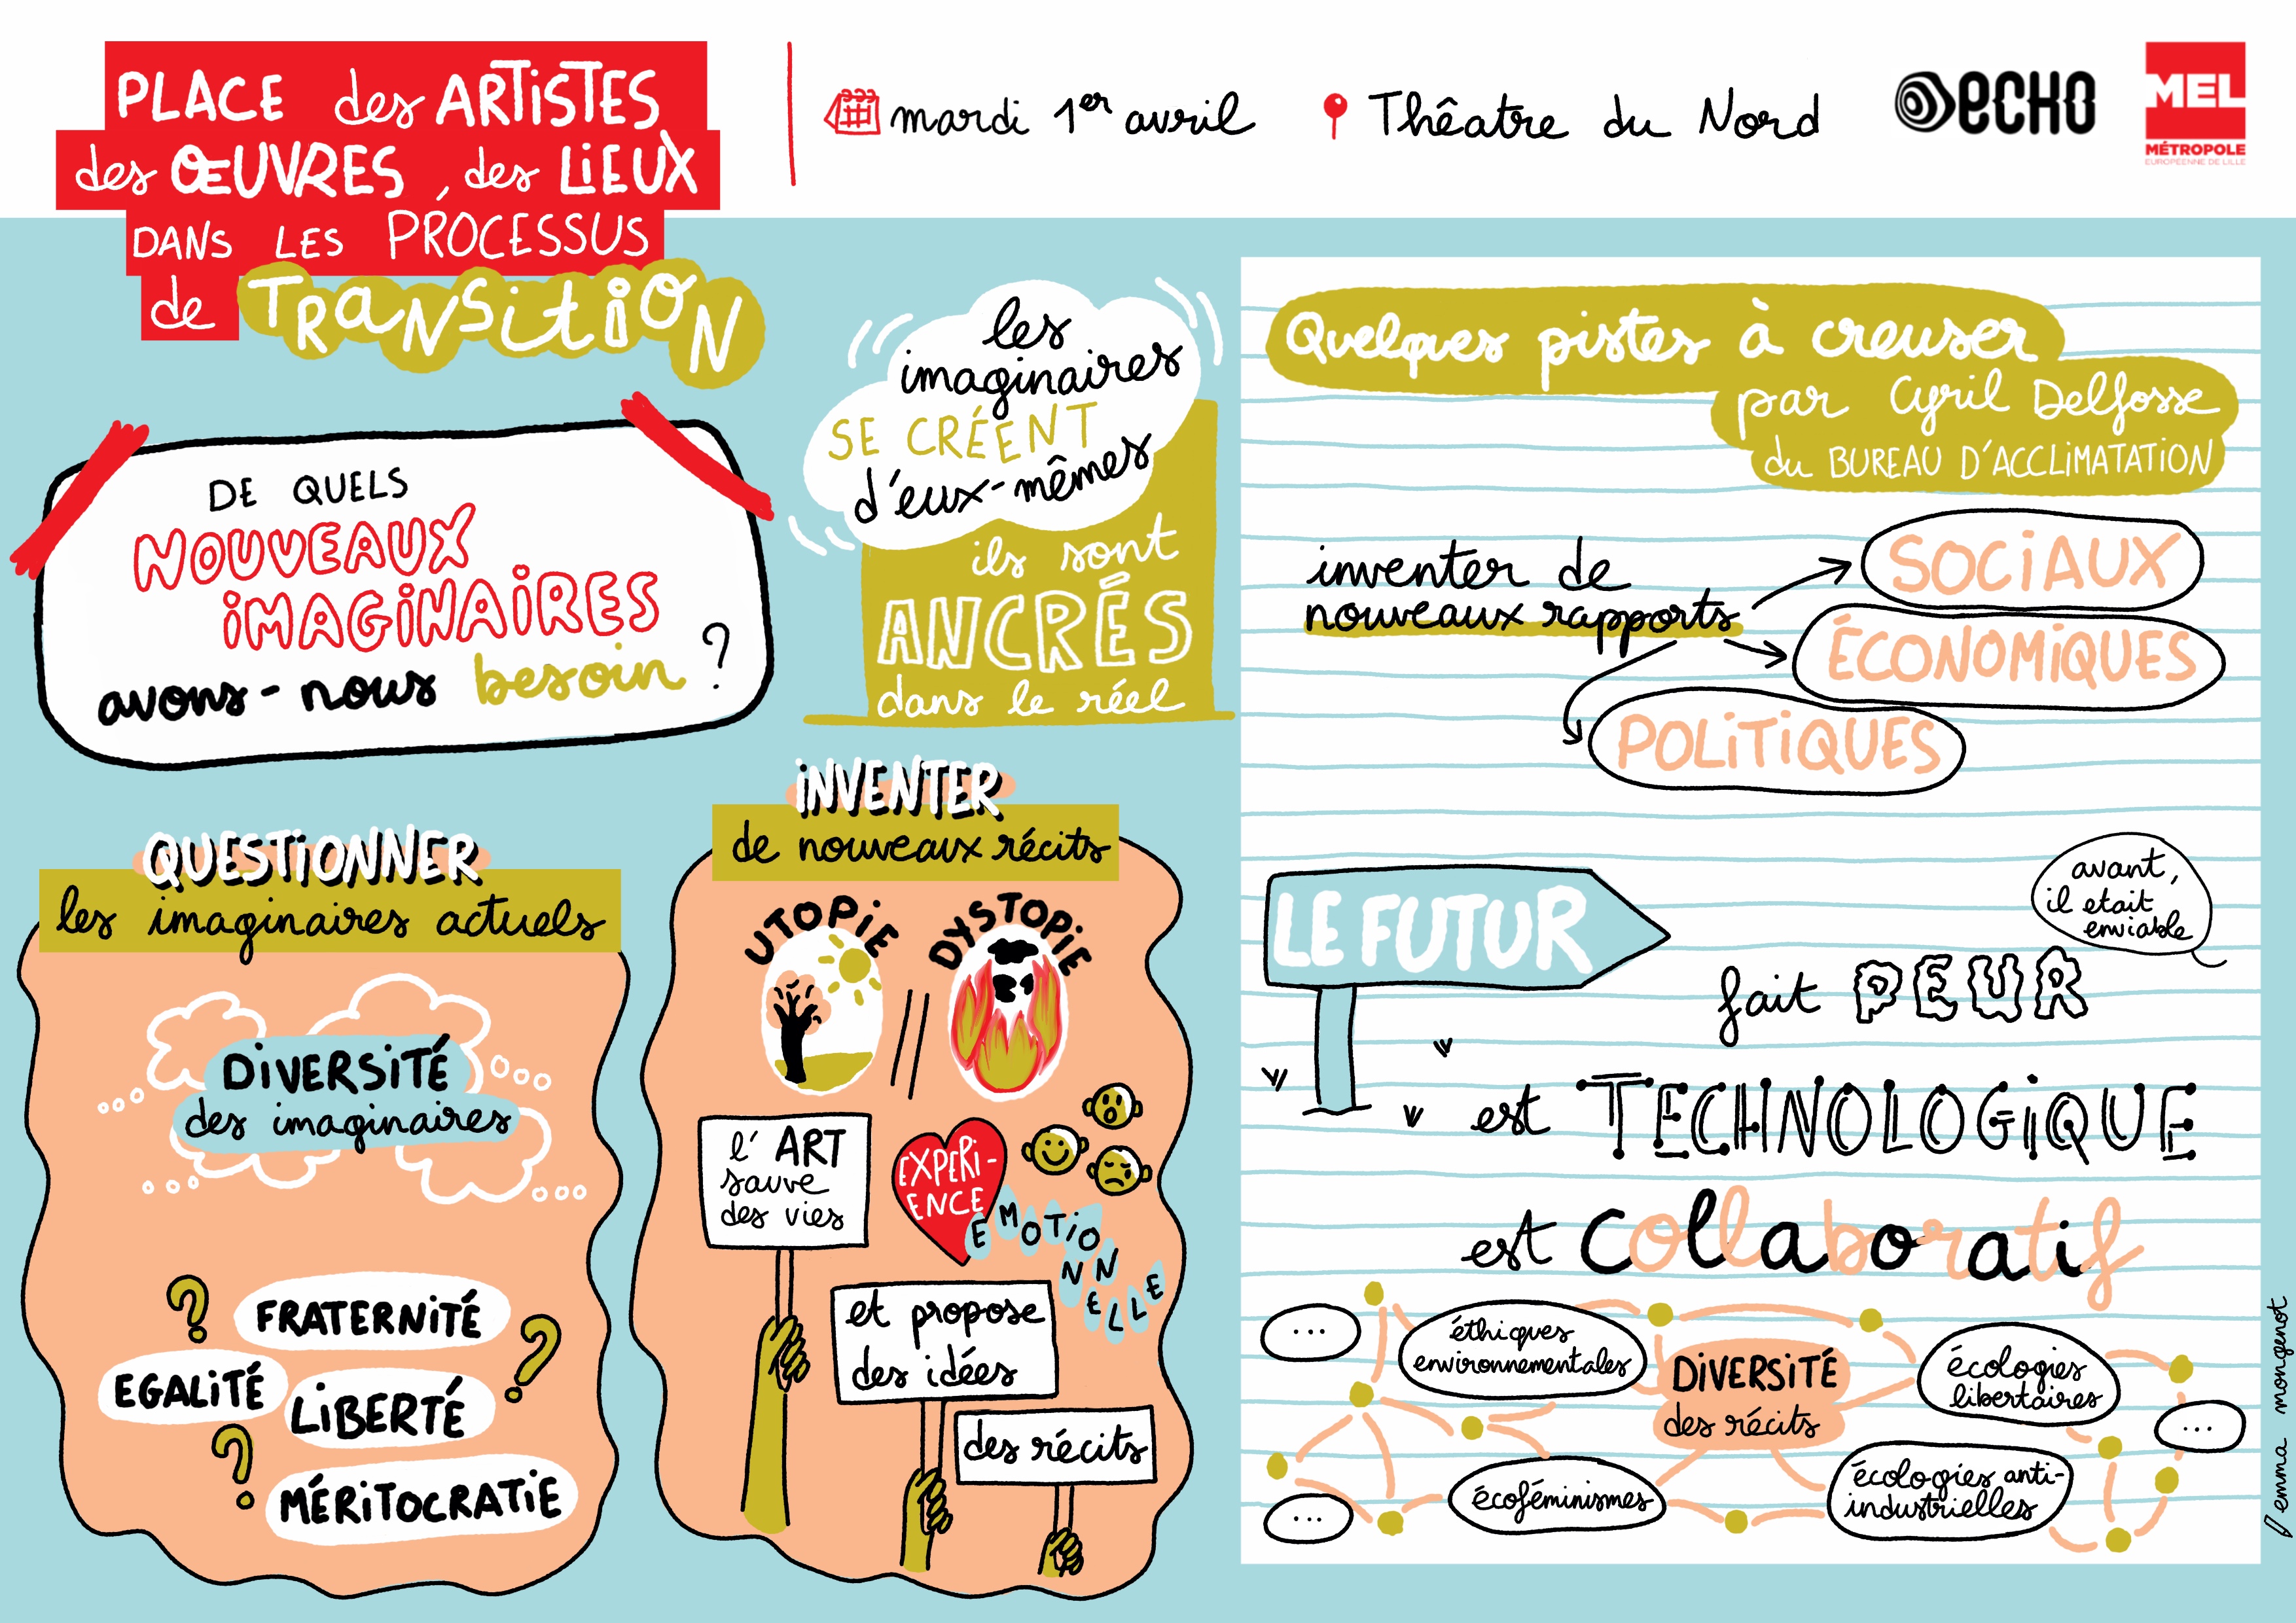 PLACE des ARTiSTES
des ŒUVRES, des LiEUX
DANS LES PROCESSUS
de TRANSiTiON
mardi 1er avril
Thêatre du Nord
ECHO
MEL
MÉTROPOLE
EUROPÉENNE DE LILLE
DE QUELS
NOUVEAUX
iMAGiNAiRES
avons-nous besoin ?
les
imaginaires
SE CRÉENT
d'eux-mêmes
ils sont
ANCRÉS
dans le réel
QUESTiONNER
les imaginaires actuels
DiVERSiTÉ
des imaginaires
FRATERNiTÉ
EGALiTÉ
LiBERTÉ
MÉRiTOCRATiE
? ? ?
iNVENTER
de nouveaux récits
UTOPiE // DYSTOPiE
l'ART
sauve
des vies
EXPERi-
ENCE
EMOTiONNELLE
et propose
des idées
des récits
Quelques pistes à creuser
par Cyril Delfosse
du BUREAU D'ACCLiMATATiON
inventer de
nouveaux rapports
SOCiAUX
ÉCONOMiQUES
POLiTiQUES
LE FUTUR
avant,
il etait
enviable
fait PEUR
est TECHNOLOGiQUE
est collaboratif
...
éthiques
environnementales
DiVERSiTÉ
des récits
écologies
libertaires
...
...
écoféminismes
écologies anti-
industrielles
emma mongenot